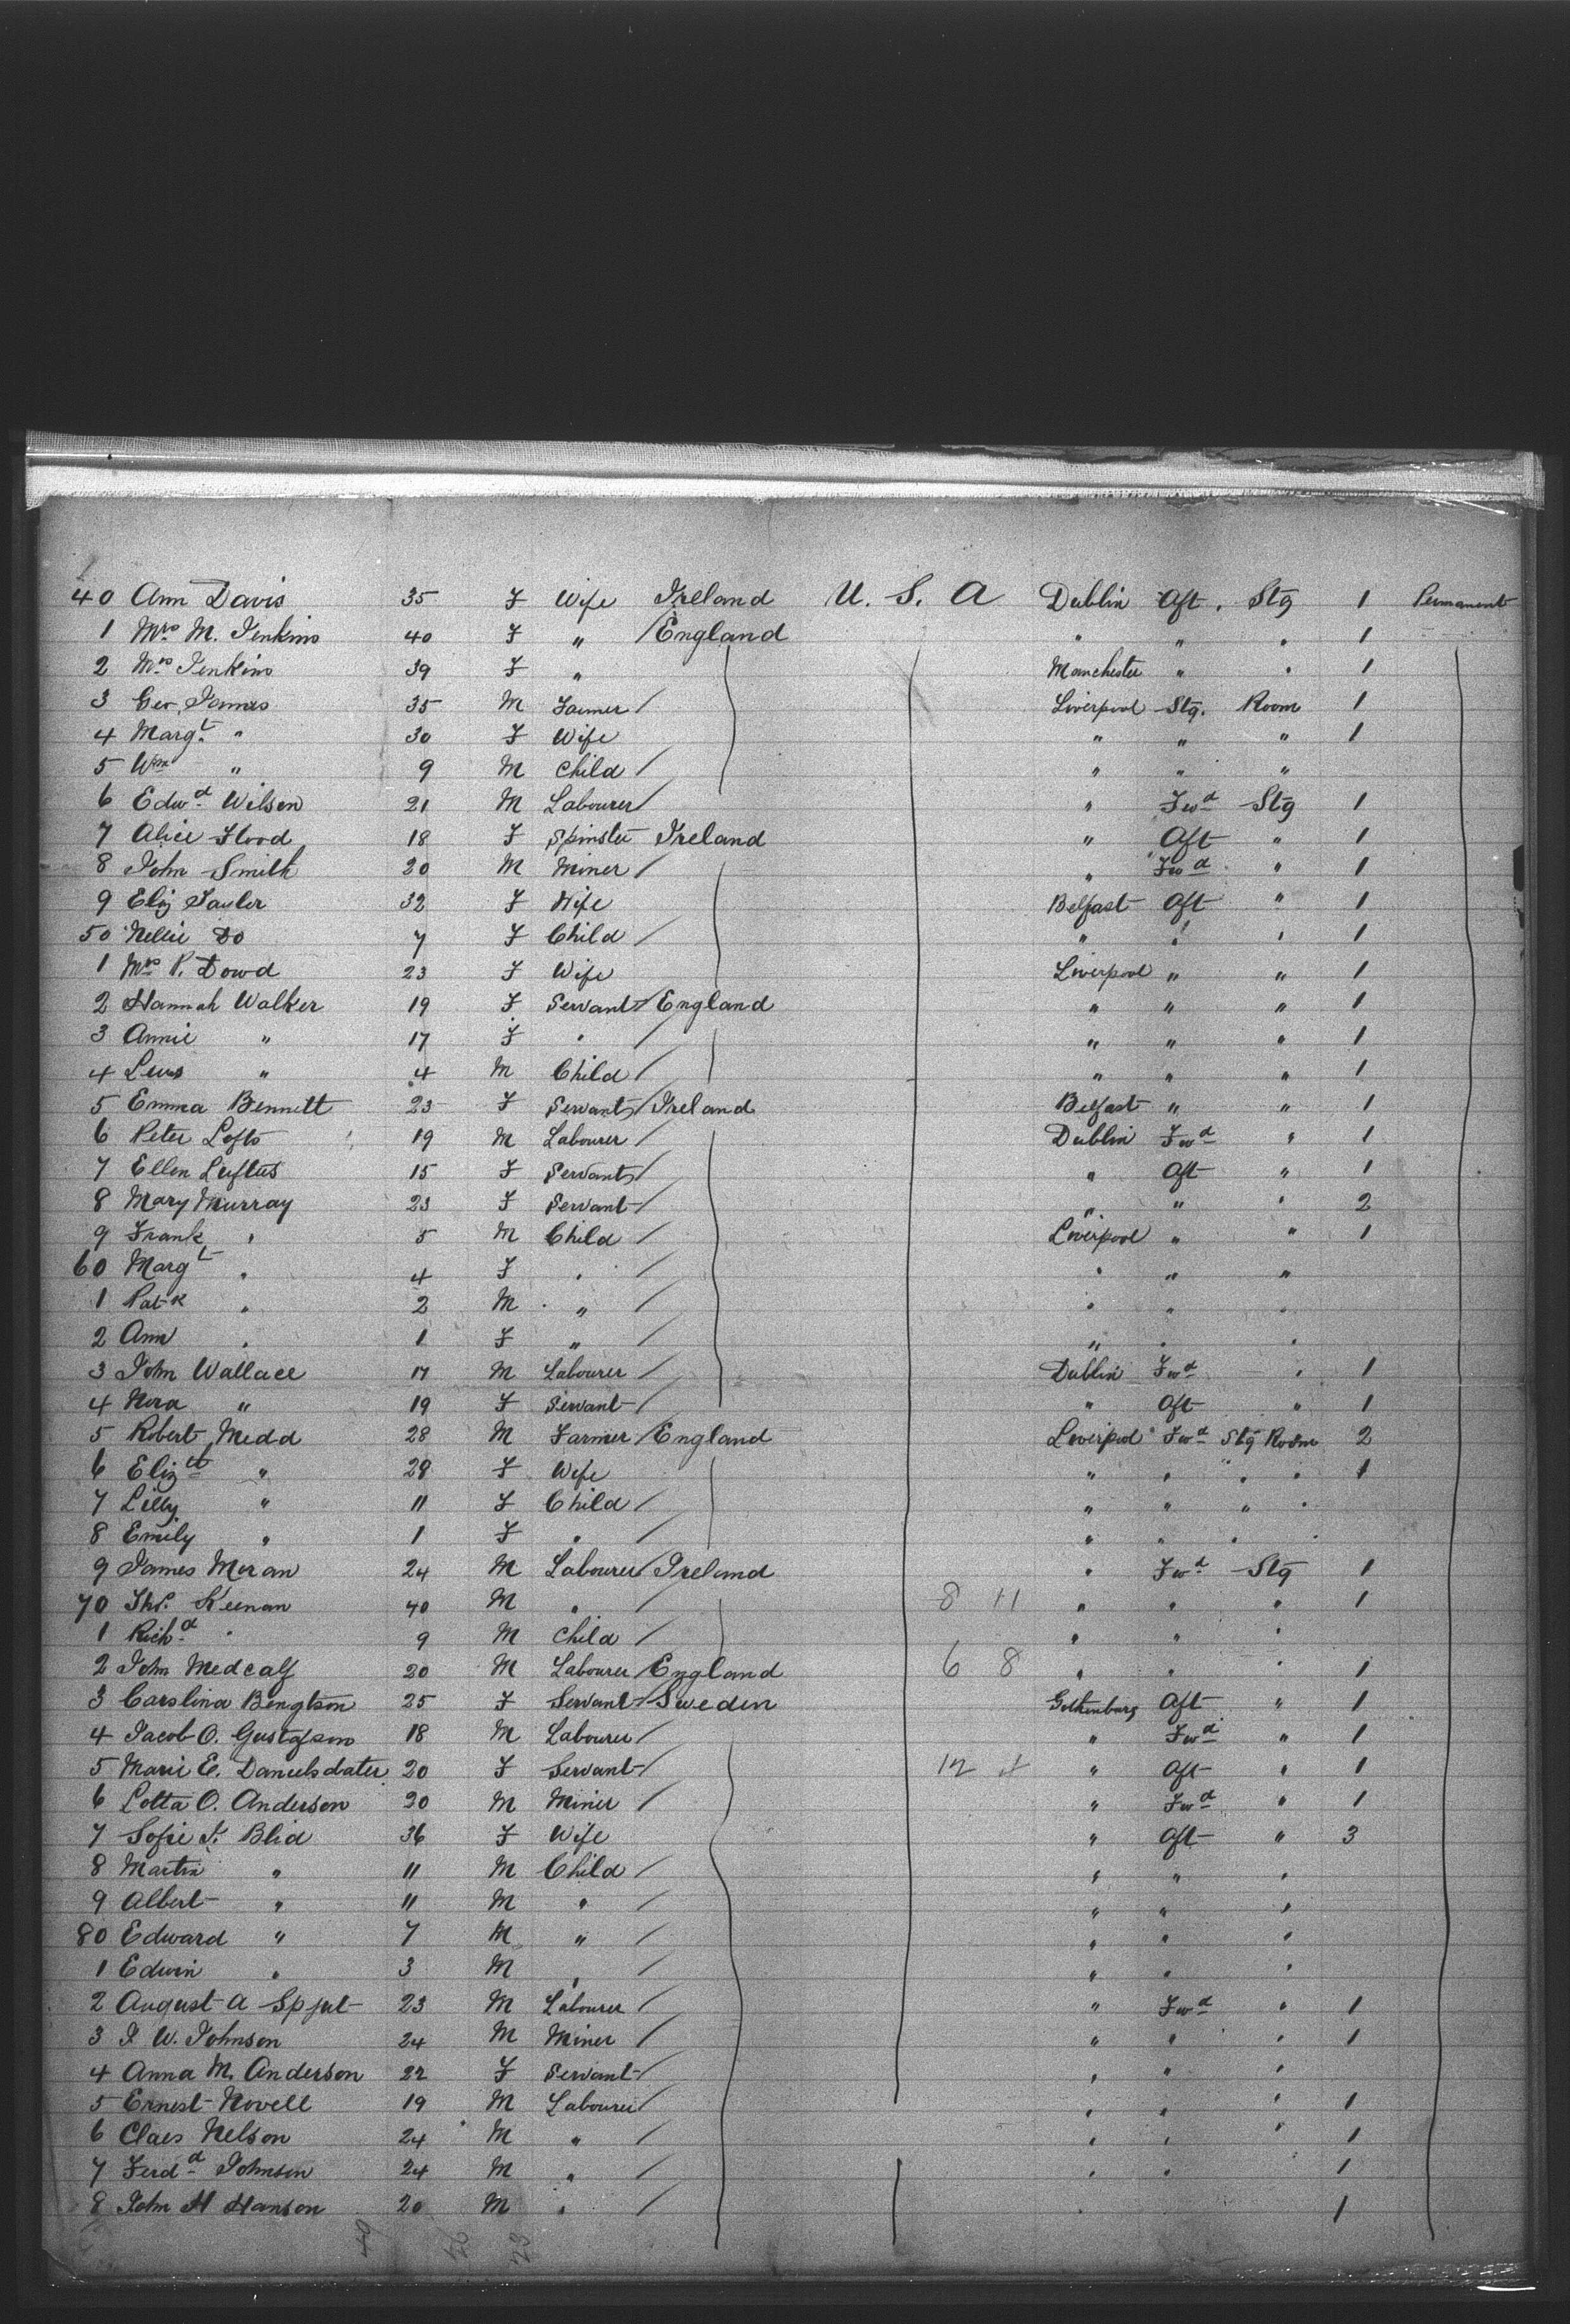 40 Ann Davis 35 F Wife Ireland U. S. A Dublin Aft. Stg 1 Permanent
1 Mrs M. Jenkins 40 F " England " " " 1
2 Mrs Jenkins 39 F " Manchester " " 1
3 Geo. James 35 M Farmer Liverpool Stg. Room 1
4 Margt. " 30 F Wife " " " 1
5 Wm " 9 M Child " " "
6 Edwd Wilson 21 M Labourer " Fwd Stg 1
7 Alice Flood 18 F Spinster Ireland " Aft " 1
8 John Smith 20 M Miner " Fwd " 1
9 Eliz 32 F Wife Belfast Aft " 1
50 Nellie Do 7 F Child " " " 1
1 Mrs P. Dowd 23 F Wife Liverpool " " 1
2 Hannah Walker 19 F Servant England " " " 1
3 Annie " 17 F " " " " 1
4 Lewis " 4 M Child " " " 1
5 Emma Bennett 23 F Servant Ireland Belfast " " 1
6 Peter Lofts 19 M Labourer Dublin Fwd " 1
7 Ellen Luftus 15 F Servant " Aft " 1
8 Mary Murray 23 F Servant " " " 2
9 Frank " 5 M Child Liverpool " " 1
60 Margt " 4 F " " " "
1 Patk " 2 M " " " "
2 Ann " 1 F " " " "
3 John Wallace 17 M Labourer Dublin Fwd " 1
4 Nora " 19 F Servant " Aft " 1
5 Robert Medd 28 M Farmer England Liverpool Fwd Stg Room 2
6 Elizth " 28 F Wife " " " " 1
7 Lilly " 11 F Child " " " "
8 Emily " 1 F " " " " "
9 James Moran 24 M Labourer Ireland " Fwd Stg 1
70 Thos. Keenan 40 M " 8 11 " " " 1
1 Richd " 9 M Child " " "
2 John Medcalf 20 M Labourer England 6 8 " " " 1
3 Carolina Bengtson 25 F Servant Sweden Gothenburg Aft " 1
4 Jacob O. Gustafson 18 M Labourer " Fwd " 1
5 Marie E. Danielsdater 20 F Servant 12 4 " Aft " 1
6 Lotta O. Anderson 20 M Miner " Fwd " 1
7 Sofie J. Blid 36 F Wife " Aft " 3
8 Martin " 11 M Child " " "
9 Albert " 11 M " " " "
80 Edward " 7 M " " " "
1 Edwin " 3 M " " " "
2 August A 23 M Labourer " Fwd " 1
3 J. W. Johnson 24 M Miner " " " 1
4 Anna M. Anderson 22 F Servant " " "
5 Ernest Novell 19 M Labourer " " " 1
6 Claes Nelson 24 M " " " " 1
7 Ferdd Johnson 24 M " " " 1
8 John H Hanson 20 M " " 1